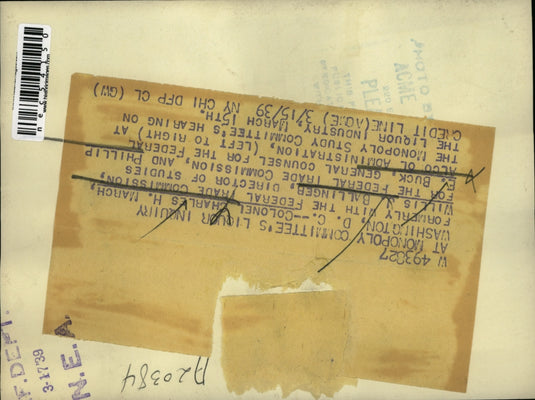 PHOTO BY
ACME
W 493827
AT MONOPOLY COMMITTEE'S LIQUOR INQUIRY
WASHINGTON, D. C.--COLONEL CHARLES H. MARCH,
FORMERLY WITH THE FEDERAL TRADE COMMISSION,
WILLIS BALLINGER, DIRECTOR OF STUDIES
FOR THE FEDERAL TRADE COMMISSION, AND PHILLIP
BUCK GENERAL COUNSEL FOR THE FEDERAL
ALCO OL ADMINISTRATION, (LEFT TO RIGHT) AT
THE MONOPOLY STUDY COMMITTEE'S HEARING ON
THE LIQUOR INDUSTRY, MARCH 15TH.
CREDIT LINE(ACME) 3/15/39 NY CHI DFP CL (GW)
3-17-39
N.E.A.
A20384